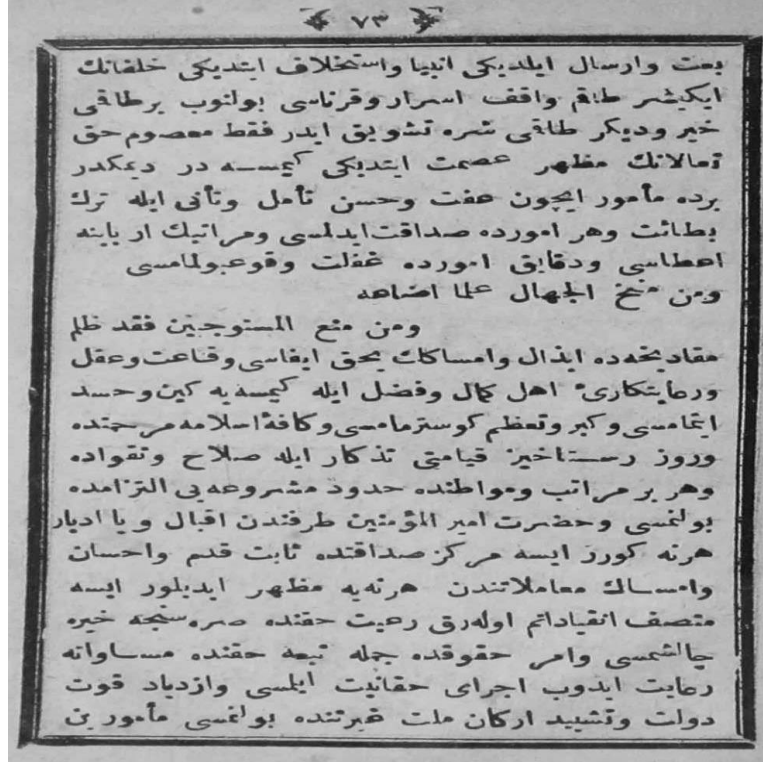 ﴿ ٧٣ ﴾
بعث وارسال ايلديكى انبيا واستخلاف ايتديكى خلفانك
ايكيشر طاقم واقف اسرار وقرناسى بولنوب برطاقى
خير وديكر طاقى شره تشويق ايدر فقط معصوم حق
تعالانك مظهر عصمت ايتديكى كيمسه در ديمكدر
برده مأمور ايچون عفت وحسن تأمل وتأنى ايله ترك
بطائت وهر امورده صداقت ايدلمسى ومراتبك اربابنه
اعطاسى ودقايق امورده غفلت وقوعبولمامسى
ومن منح الجهال علما اضاعه
ومن منع المستوجبين فقد ظلم
مقاديخه ده ابذال وامساكك بحق ايفاسى وقناعت وعقل
ورعايتكارئ اهل كمال وفضل ايله كيمسه يه كين وحسد
ايتمامسى وكبر وتعظم كوسترمامسى وكافهٔ اسلامه مرحمتده
وروز رستاخيز قيامتى تذكار ايله صلاح وتقواده
وهر بر مراتب ومواطنده حدود مشروعه يى التزامده
بولنمسى وحضرت امير المؤمنين طرفندن اقبال ويا ادبار
هرنه كورر ايسه مركز صداقتده ثابت قدم واحسان
وامساك معاملاتندن هرنه يه مظهر ايديلور ايسه
متصف انقياداتم اوله رق رعيت حقنده خيره
چالشمسى وامر حقوقده جمله تبعه حقنده مساواته
رعايت ايدوب اجراى حقانيت ايلمسى وازدياد قوت
دولت وتشييد اركان ملت غيرتنده بولنمسى مأمورين